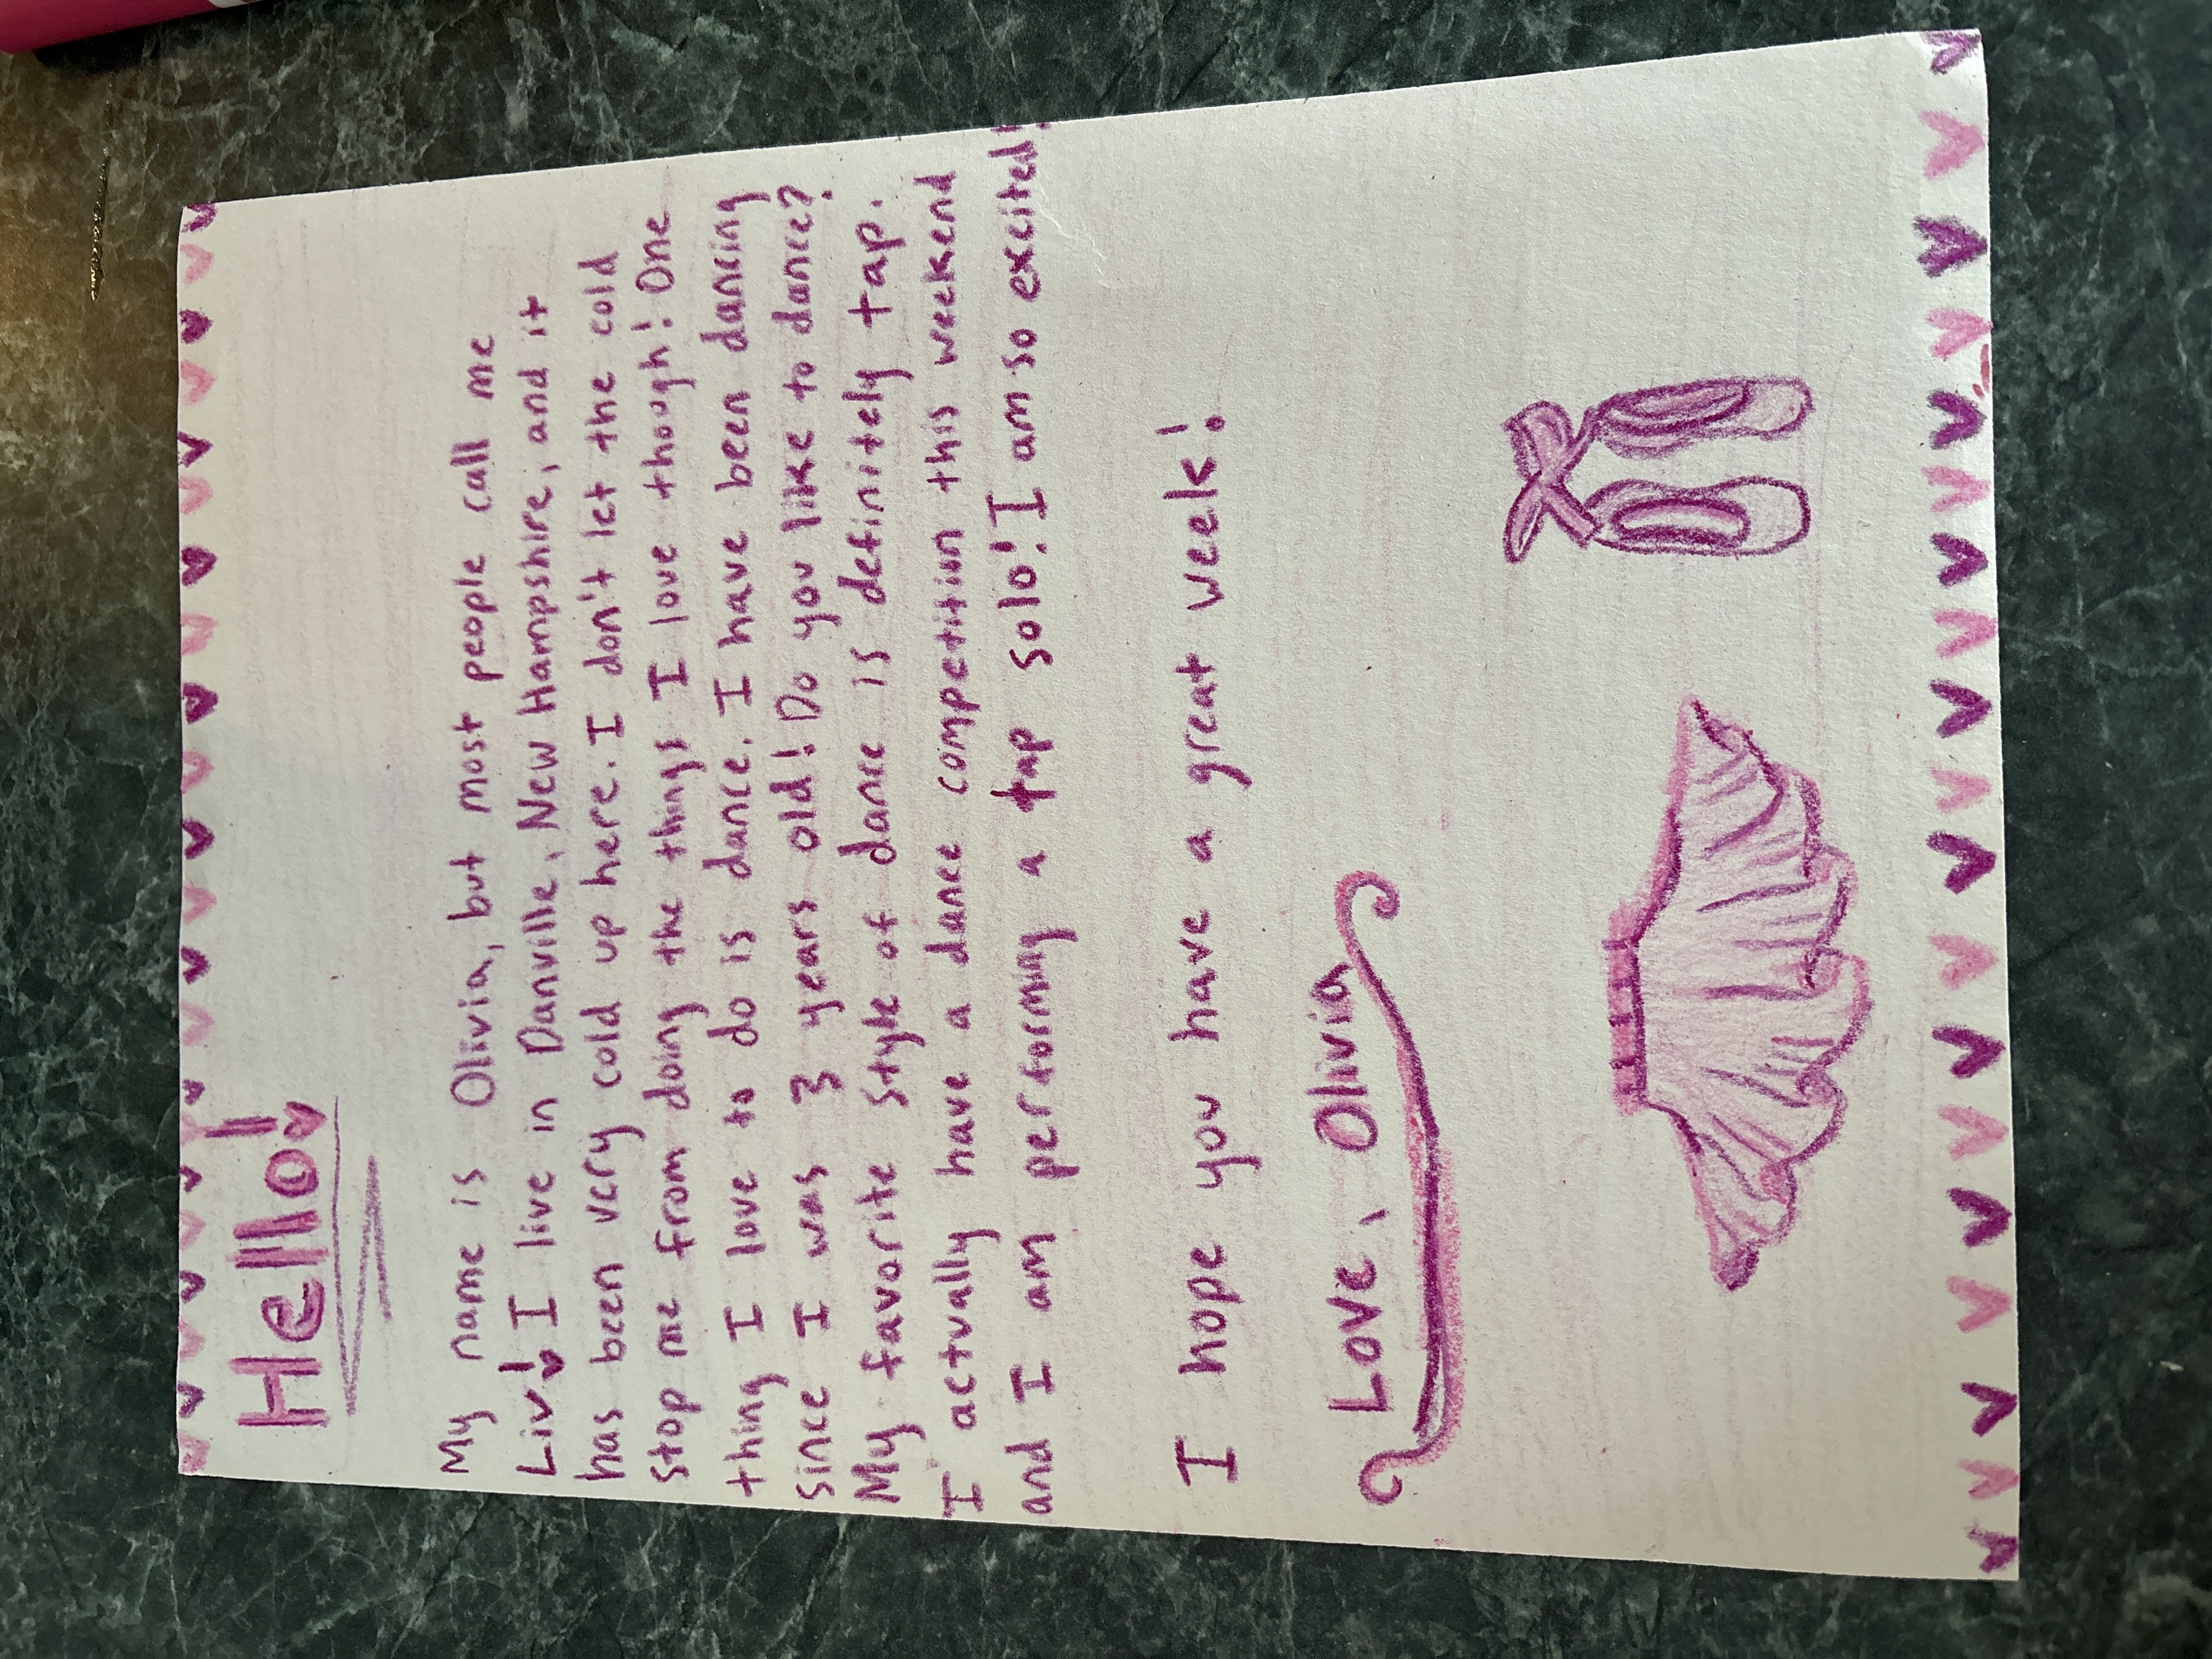 Hello!
My name is Olivia, but most people call me
Liv! I live in Danville, New Hampshire, and it
has been very cold up here. I don't let the cold
stop me from doing the things I love though! One
thing I love to do is dance. I have been dancing
since I was 3 years old! Do you like to dance?
My favorite style of dance is definitely tap.
I actually have a dance competition this weekend
and I am performing a tap solo! I am so excited!
I hope you have a great week!
Love, Olivia